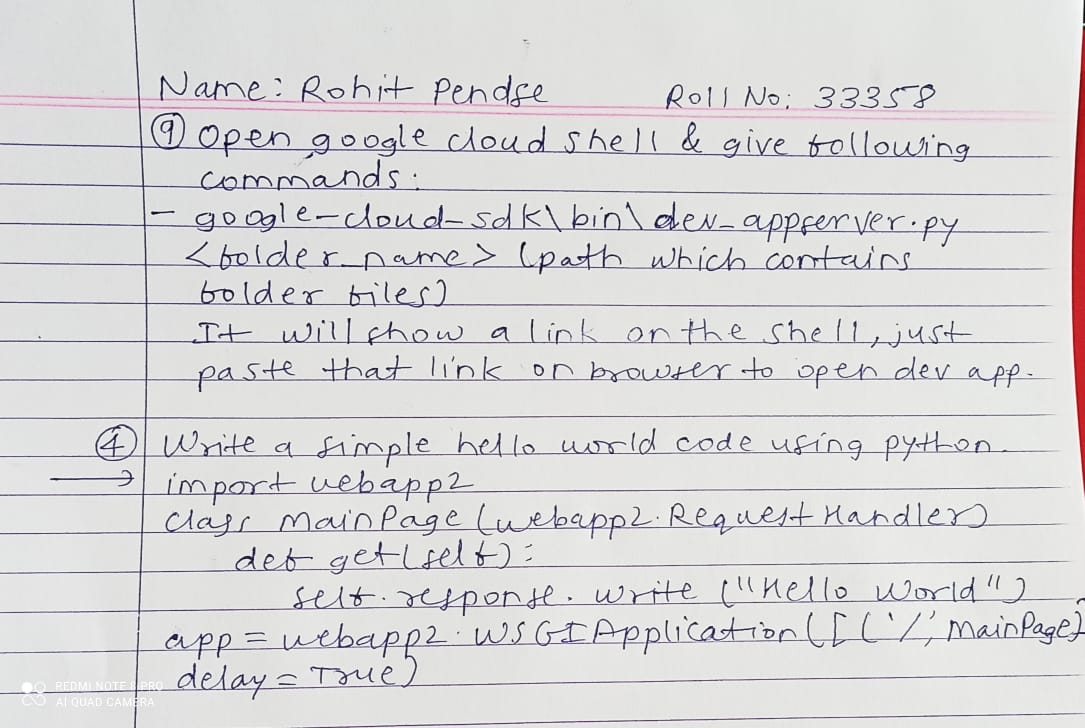 Name: Rohit Pendse Roll No: 33358
⑨ Open google cloud shell & give following
commands:
- google-cloud-sdk\bin\dev_appserver.py
<folder_name> (path which contains
folder files)
It will show a link on the shell, just
paste that link on browser to open dev app.
④ Write a simple hello world code using python.
→ import webapp2
class MainPage (webapp2.RequestHandler)
def get(self):
self.response.write ("Hello World")
app = webapp2.WSGIApplication([('/', MainPage)
delay = True)
REDMI NOTE 8 PRO
AI QUAD CAMERA